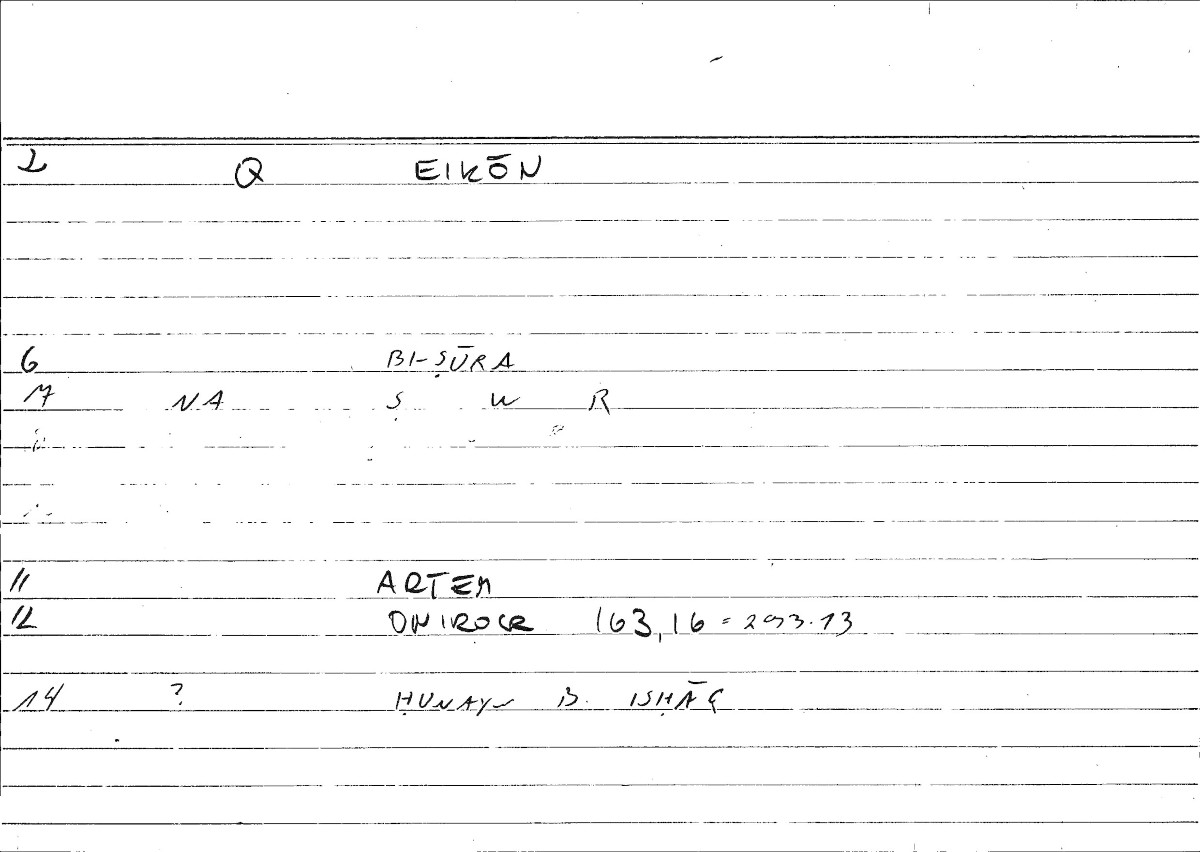 2 Q EIKŌN
6 BI-ṢŪRA
7 NA Ṣ W R
11 ARTEM
12 ONIROCR 163,16 = 293.13
14 ? ḤUNAYN B. ISḤĀQ